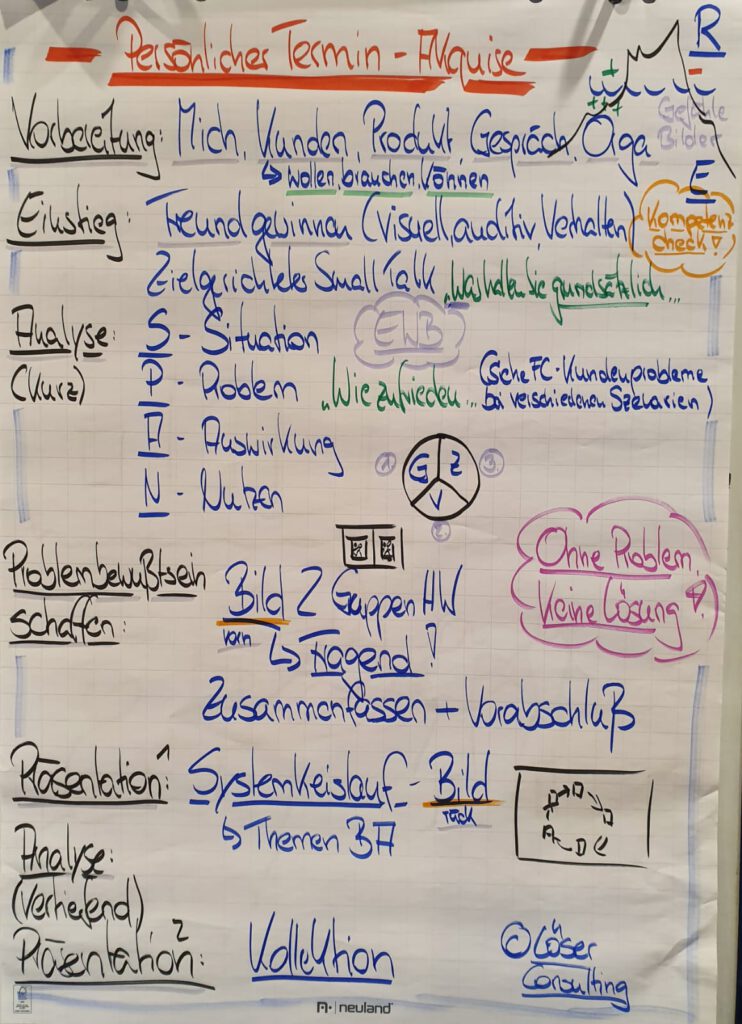 Persönlicher Termin - Akquise
R
+ +
-
+++
Gefühle
Bilder
E
Vorbereitung: Mich, Kunden, Produkt, Gespräch, Orga
↳ wollen, brauchen, können
Einstieg: Freund gewinnen (visuell, auditiv, Verhalten)
Kompetenz
check!
Zielgerichteter Small Talk „Was halten Sie grundsätzlich...
Analyse: S - Situation
EWB
(kurz) P - Problem „Wie zufrieden... (siehe FC-Kundenprobleme
bei verschiedenen Szenarien)
A - Auswirkung
N - Nutzen
1. G Z 3.
V
2.
Problembewußtsein
schaffen:
Bild 2 Gruppen HW
vorn
↳ Fragend!
Ohne Problem,
Keine Lösung!
Zusammenfassen + Vorabschluß
Präsentation 1: Systemkreislauf - Bild
rück
↳ Themen BA
Analyse:
(Vertiefend),
Präsentation 2: Kollektion
© Löser
Consulting
neuland